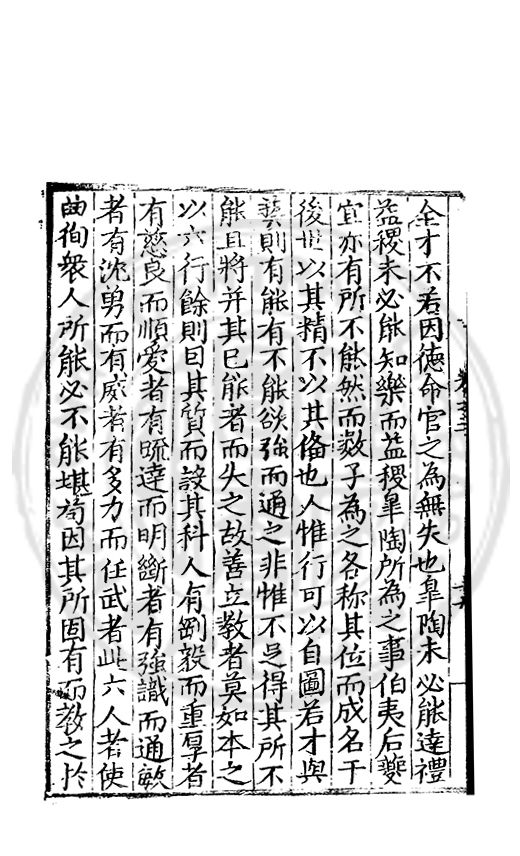 全才不若因徳命官之為無失也臯陶未必能達禮
益稷未必能知樂而益稷臯陶所為之事伯夷后夔
宜亦有所不能然而數子為之各称其位而成名于
後世以其精不以其俻也人惟行可以自圖若才與
藝則有能有不能欲強而通之非惟不足得其所不
能且將并其已能者而失之故善立教者莫如本之
以六行餘則因其質而設其科人有剛毅而重厚者
有慈良而順愛者有疏達而明斷者有強識而通敏
者有沈勇而有威者有多力而任武者此六人者使
曲徇衆人所能必不能堪苟因其所固有而教之於